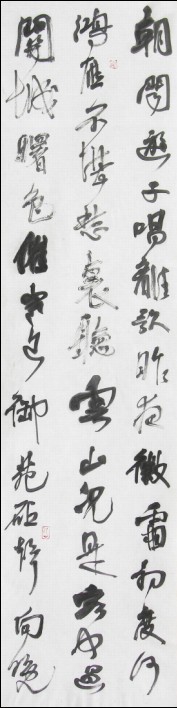 朝聞遊子唱離歌昨夜微霜初度河
鴻雁不堪愁裏聽雲山況是客中過
關城曙色催寒近御苑砧聲向晚